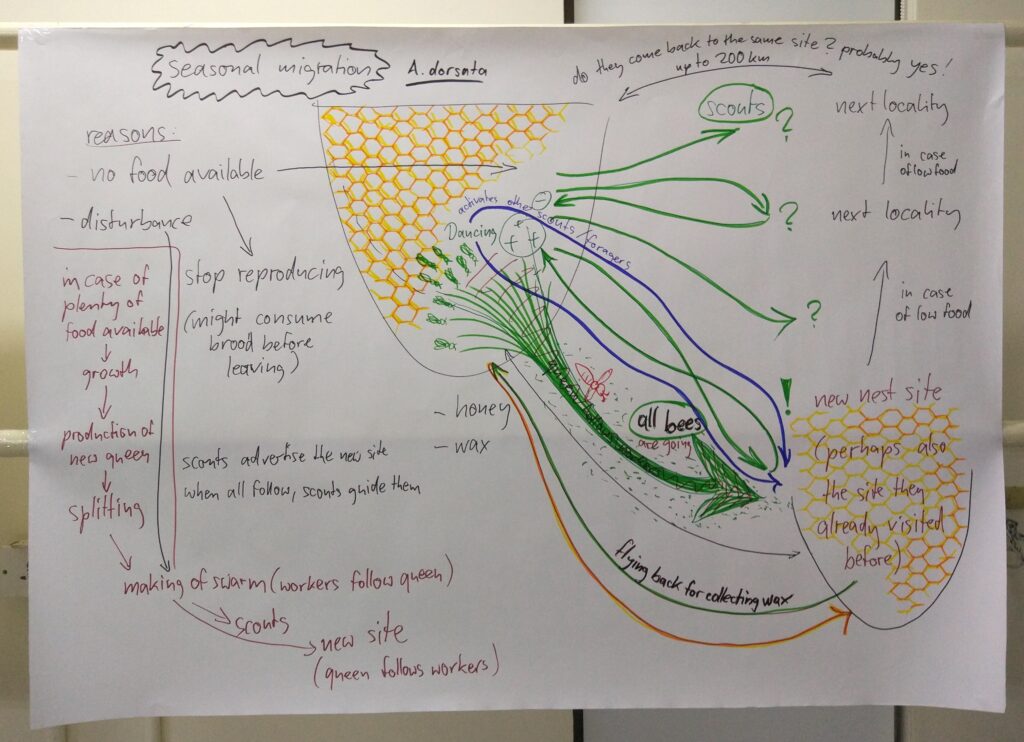 Seasonal migration
A. dorsata
do they come back to the same site? probably yes!
up to 200 km
reasons:
- no food available
- disturbance
stop reproducing
(might consume
brood before
leaving)
in case of
plenty of
food available
growth
production of
new queen
splitting
making of swarm (workers follow queen)
scouts
new site
(queen follows workers)
scouts advertise the new site
when all follow, scouts guide them
- honey
- wax
activates other scouts/foragers
Dancing
-
+ +
scouts
?
?
?
!
all bees
are going
flying back for collecting wax
next locality
in case
of low food
next locality
in case
of low food
new nest site
(perhaps also
the site they
already visited
before)